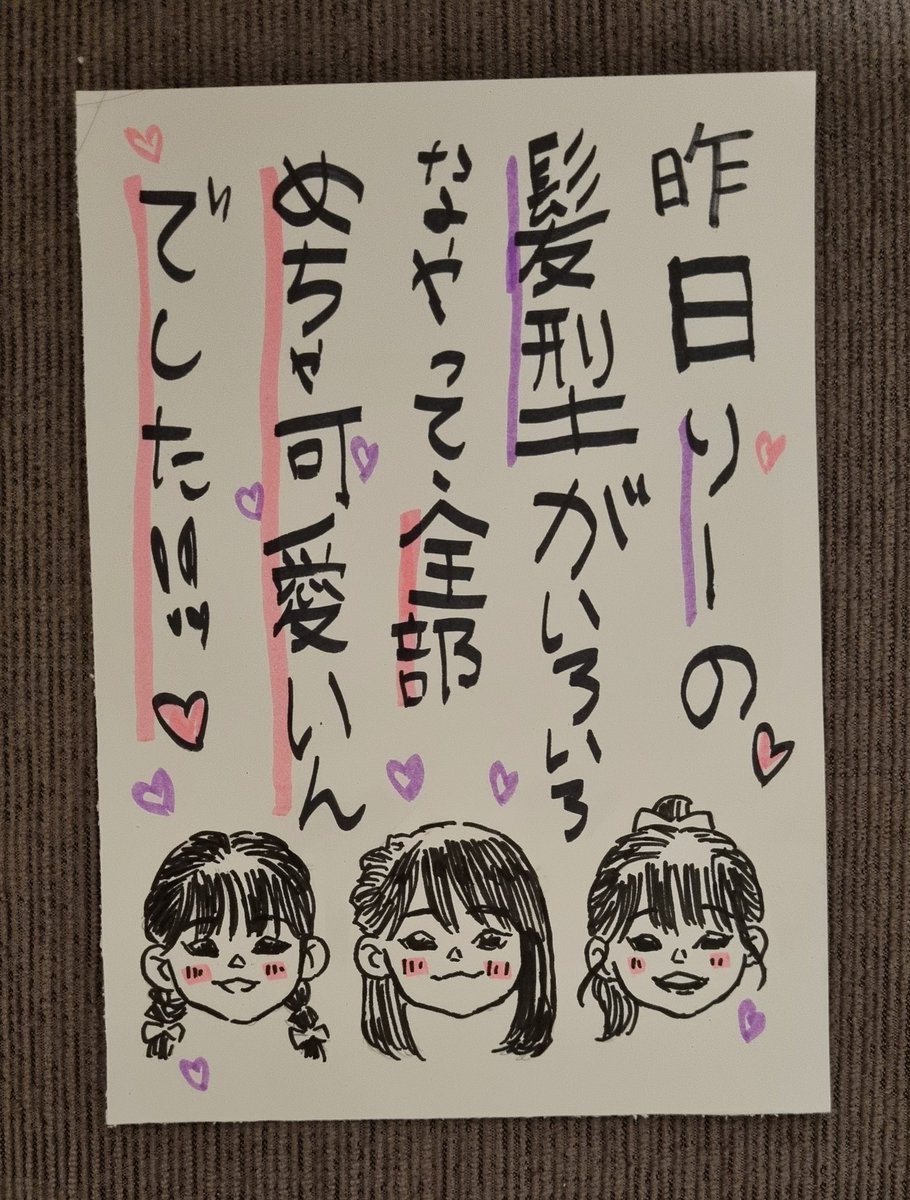 昨日りーの
髪型がいろいろ
なやって、全部
めちゃ可愛いん
でした!!ッ